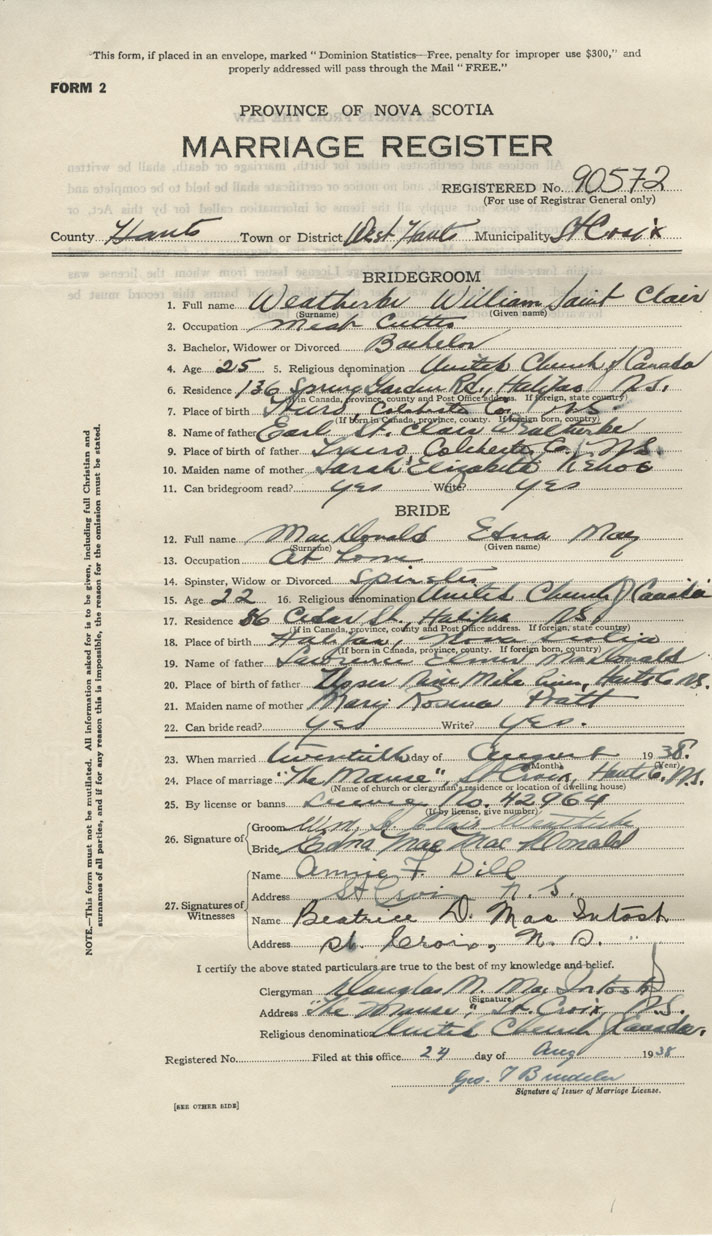 "This form, if placed in an envelope, marked "Dominion Statistics—Free, penalty for improper use $300," and
properly addressed will pass through the Mail "FREE."
FORM 2
PROVINCE OF NOVA SCOTIA
MARRIAGE REGISTER
REGISTERED No. 90572
(For use of Registrar General only)
County Hants Town or District West Hants Municipality St Croix
BRIDEGROOM
1. Full name Weatherbe William Saint Clair
(Surname) (Given name)
2. Occupation Meat Cutter
3. Bachelor, Widower or Divorced Bachelor
4. Age 25 5. Religious denomination United Church of Canada
6. Residence 136 Spring Garden Rd., Halifax N.S.
(If in Canada, province, county and Post Office address. If foreign, state country)
7. Place of birth Truro, Colchester Co., N.S.
(If born in Canada, province, county. If foreign born, country)
8. Name of father Earl St. Clair Weatherbe
9. Place of birth of father Truro Colchester Co., N.S.
10. Maiden name of mother Sarah Elizabeth Kehoe
11. Can bridegroom read? yes Write? yes
BRIDE
12. Full name MacDonald Edna May
(Surname) (Given name)
13. Occupation At home
14. Spinster, Widow or Divorced Spinster
15. Age 22 16. Religious denomination United Church of Canada
17. Residence 86 Cedar St., Halifax N.S.
(If in Canada, province, county and Post Office address. If foreign, state country)
18. Place of birth Halifax, Nova Scotia
(If born in Canada, province, county. If foreign born, country)
19. Name of father Lawrence Elmer MacDonald
20. Place of birth of father Upper Nine Mile River, Hants Co. N.S.
21. Maiden name of mother Mary Rosina Pratt
22. Can bride read? yes Write? yes.
23. When married twentieth day of August 1938.
(Month) (Year)
24. Place of marriage "The Manse", St Croix, Hants Co. N.S.
(Name of church or clergyman's residence or location of dwelling house)
25. By license or banns License No. 42964
(If by license, give number)
26. Signature of Groom Wm. St Clair Weatherbe
Bride Edna Mae MacDonald
27. Signatures of Witnesses Name Annie F. Dill
Address St Croix N.S.
Name Beatrice D. MacIntosh
Address St. Croix, N.S.
I certify the above stated particulars are true to the best of my knowledge and belief.
Clergyman Douglas M. MacIntosh
(Signature)
Address "The Manse", St. Croix, N.S.
Religious denomination United Church of Canada.
Registered No. Filed at this office 24 day of Aug 1938
Geo. T
Signature of Issuer of Marriage License.
[SEE OTHER SIDE]
NOTE.—This form must not be mutilated. All information asked for is to be given, including full Christian and
surnames of all parties, and if for any reason this is impossible, the reason for the omission must be stated.